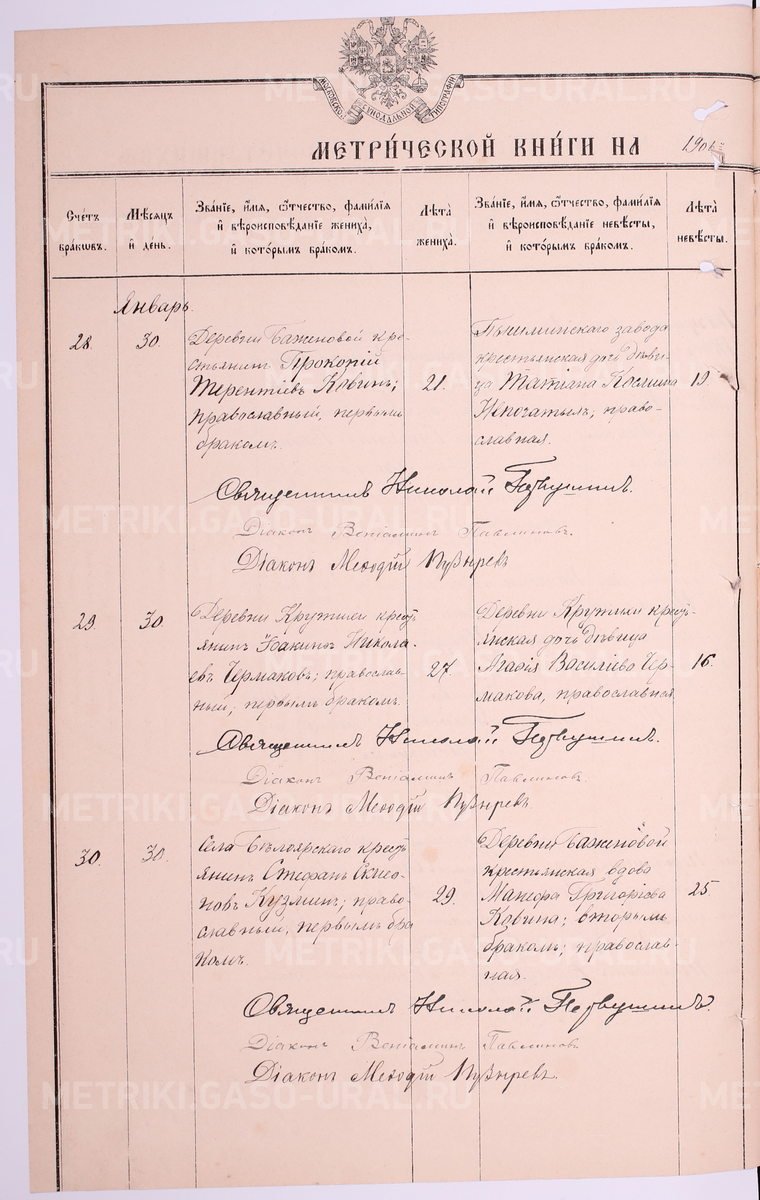 МОСКОВСКОЙ СѴНОДАЛЬНОЙ ТИПОГРАФІИ
МЕТРИ́ЧЕСКОЙ КНИ́ГИ НА
Сче́тъ бра́кѡвъ.
Мѣ́сяцъ и҆ де́нь.
Зва́нїе, и҆́мя, ѻ҆́тчество, фами́лїя
и҆ вѣроисповѣ́данїе жениха̀,
и҆ кото́рымъ бра́комъ.
Лѣ́та жениха̀.
Зва́нїе, и҆́мя, ѻ҆́тчество, фами́лїя
и҆ вѣроисповѣ́данїе невѣ́сты,
и҆ кото́рымъ бра́комъ.
Лѣ́та невѣ́сты.
Январь.
28
30
Деревни Баженовой кре-
стьянинъ Прокопій
Терентіевъ Ковинъ;
православный, первымъ
бракомъ.
21.
Пышминскаго завода
крестьянская дочь дѣви-
ца Татіана Космина
Непочатыхъ; право-
славная.
19.
Священникъ Николай Первушинъ.
Діаконъ Веніаминъ Павлиновъ.
Діаконъ Меѳодій Пузыревъ
29
30
Деревни Крутихи кресть-
янинъ Іоакимъ Никола-
евъ Чермаковъ; православ-
ный; первымъ бракомъ.
27.
Деревни Крутихи кресть-
янская дочь дѣвица
Агаѳія Василіева Чер-
макова, православная
16.
Священникъ Николай Первушинъ.
Діаконъ Веніаминъ Павлиновъ.
Діаконъ Меѳодій Пузыревъ.
30
30.
Села Бѣлоярскаго кресть-
янинъ Стефанъ Симео-
новъ Кузминъ; право-
славный, первымъ бра
комъ.
29.
Деревни Баженовой
крестьянская вдова
Манефа Григоріева
Ковина; вторымъ
бракомъ; православ-
ная.
25.
Священникъ Николай Первушинъ.
Діаконъ Веніаминъ Павлиновъ
Діаконъ Меѳодій Пузыревъ.
METRIKI.GASO-URAL.RU